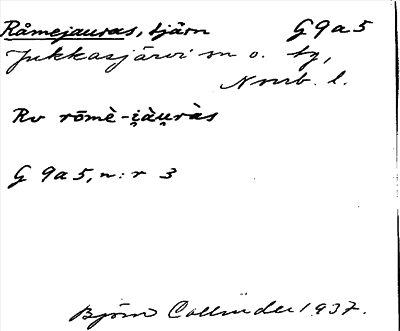 Råmejauras, tjärn G 9 a 5
Jukkasjärvi sn o. tg,
Norrb. l.
Rv rōmè-i̯àu̯ràs
G 9 a 5, n:r 3
Björn Collinder 1937.